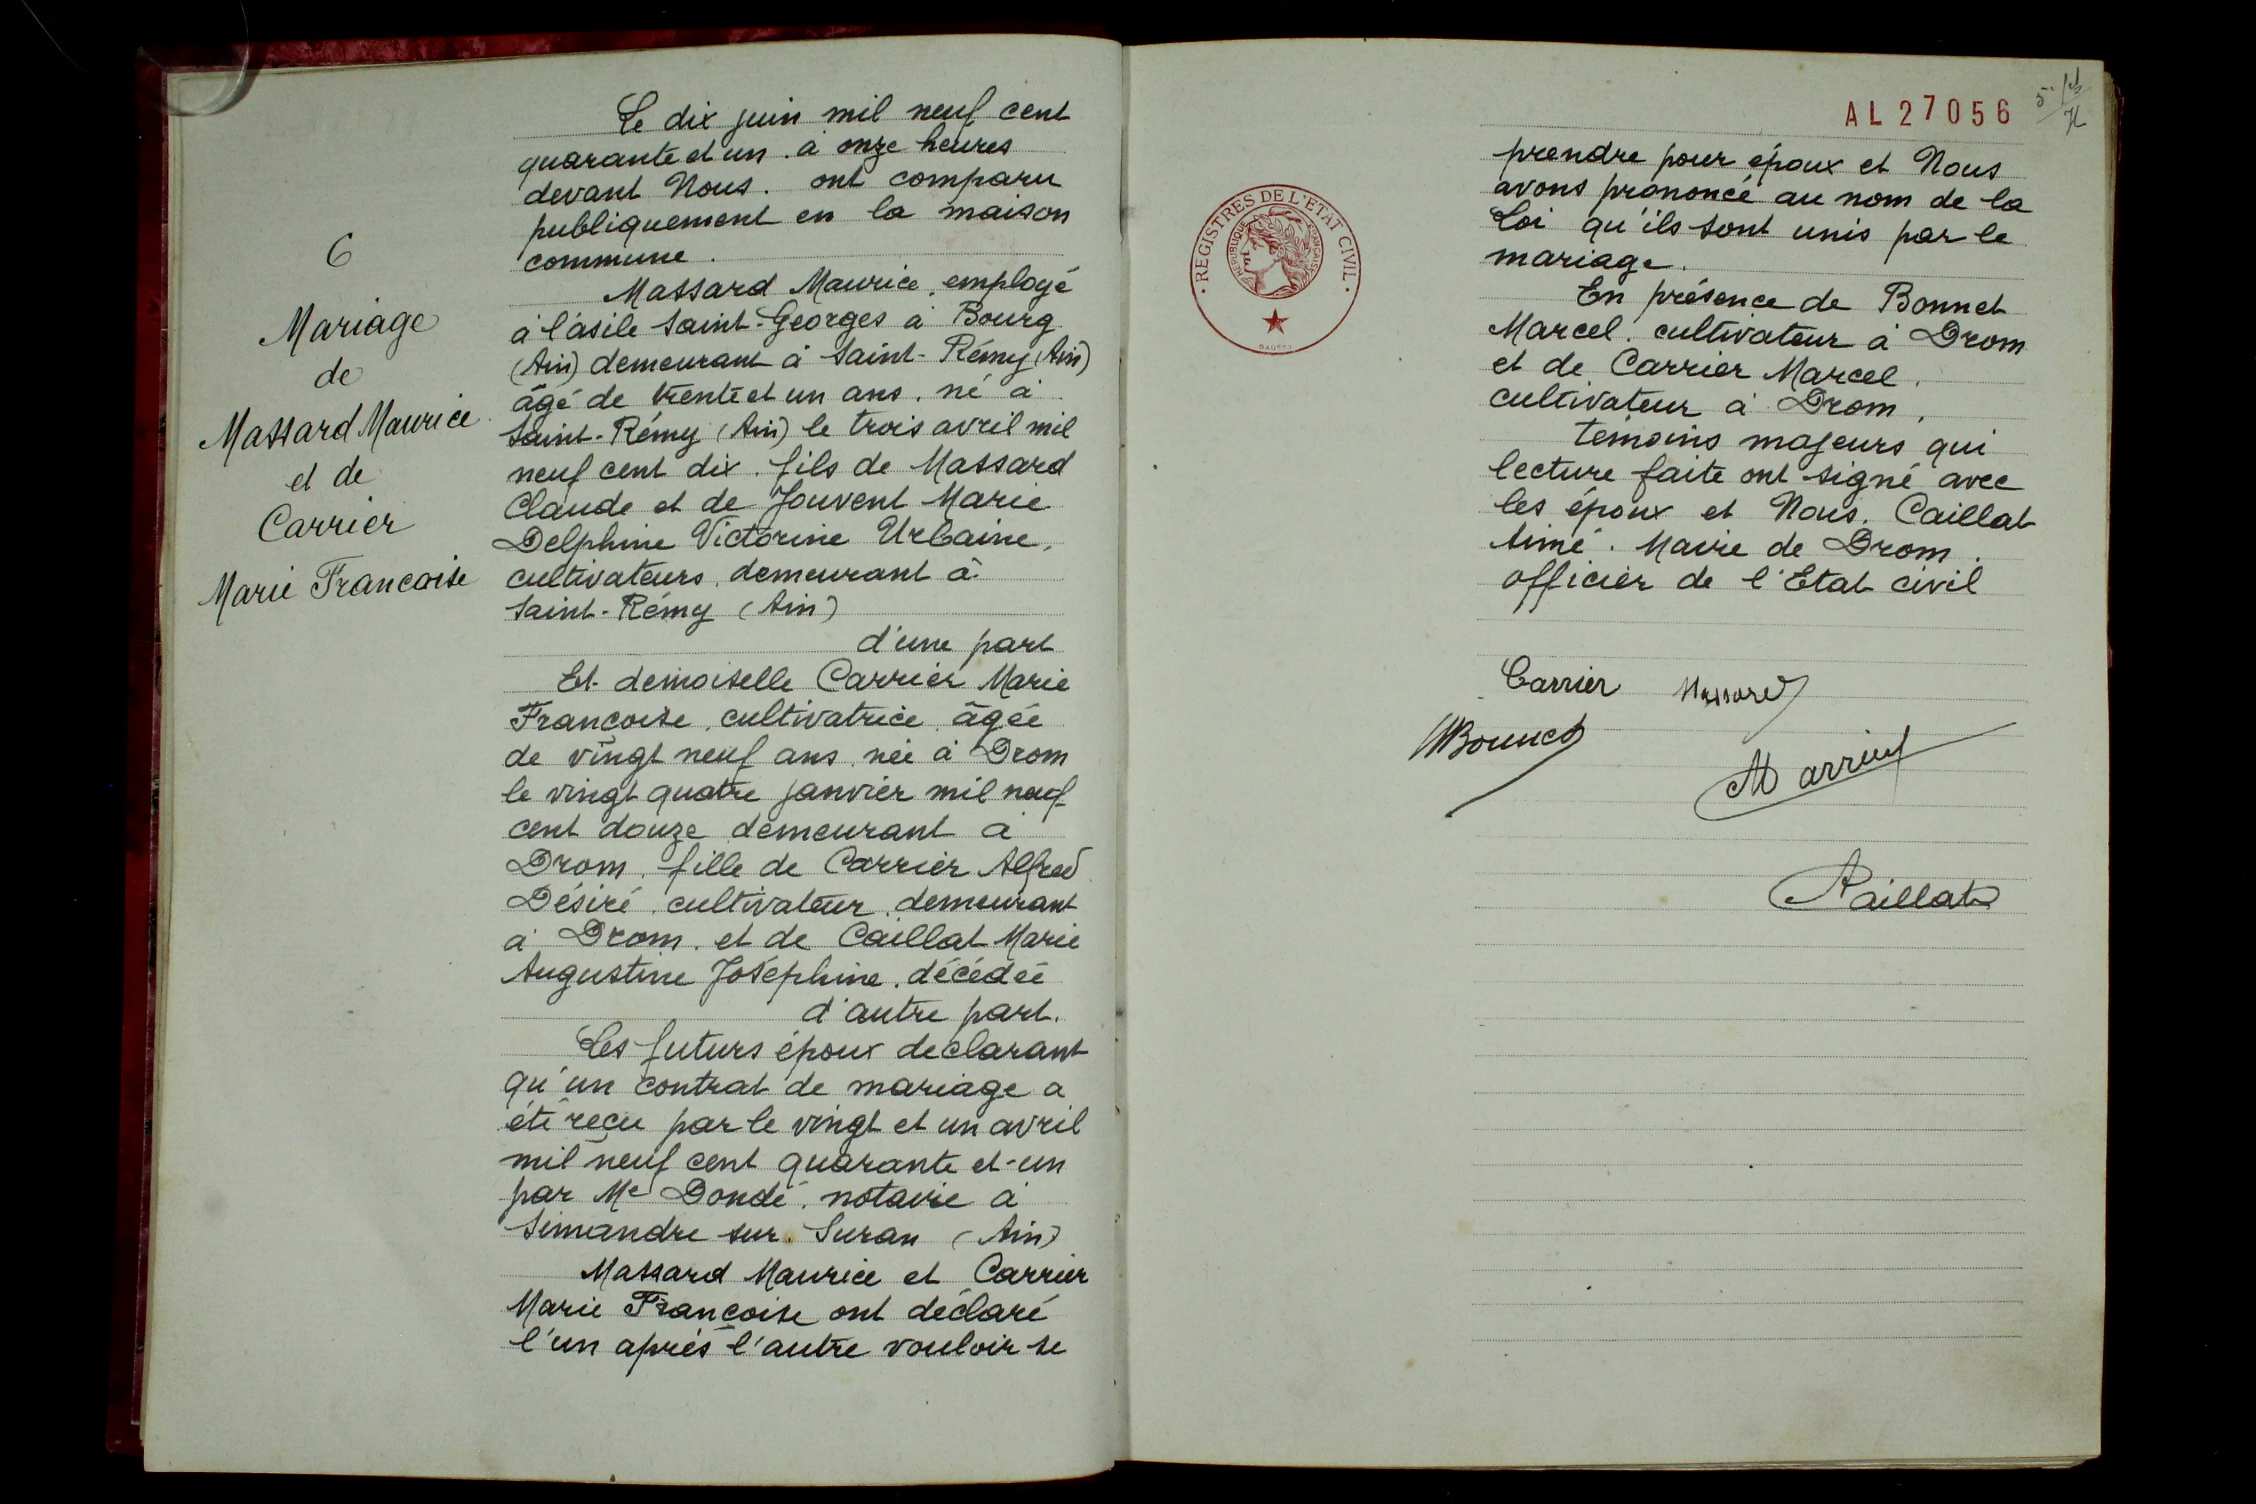 6
Mariage
de
Massard Maurice
et de
Carrier
Marie Francoise
Le dix juin mil neuf cent
quarante et un. à onze heures
devant Nous. ont comparu
publiquement en la maison
commune.
Massard Maurice, employé
à l'asile Saint-Georges à Bourg
(Ain) demeurant à Saint-Rémy (Ain)
âgé de trente et un ans. né à
Saint-Rémy (Ain) le trois avril mil
neuf cent dix. fils de Massard
Claude et de Jouvent Marie
Delphine Victorine Urbaine,
cultivateurs, demeurant à
Saint-Rémy (Ain)
d'une part
Et demoiselle Carrier Marie
Françoise, cultivatrice, âgée
de vingt neuf ans, née à Drom
le vingt quatre janvier mil neuf
cent douze demeurant à
Drom. fille de Carrier Alfred
Désiré, cultivateur, demeurant
à Drom. et de Caillat Marie
Augustine Joséphine. décédée
d'autre part.
Les futurs époux déclarant
qu'un contrat de mariage a
été reçu par le vingt et un avril
mil neuf cent quarante et un
par Me Dondé, notaire à
Simandre sur Suran (Ain)
Massard Maurice et Carrier
Marie Françoise ont déclaré
l'un après l'autre vouloir se
REGISTRES DE L'ETAT CIVIL
REPUBLIQUE FRANCAISE
AL27056
prendre pour époux et Nous
avons prononcé au nom de la
Loi qu'ils sont unis par le
mariage.
En présence de Bonnet
Marcel, cultivateur à Drom
et de Carrier Marcel,
cultivateur à Drom,
témoins majeurs qui
lecture faite ont signé avec
les époux et Nous, Caillat
Aimé. Maire de Drom.
officier de l'Etat civil
Carrier Massard
MBonnet
MCarrier
ACaillat